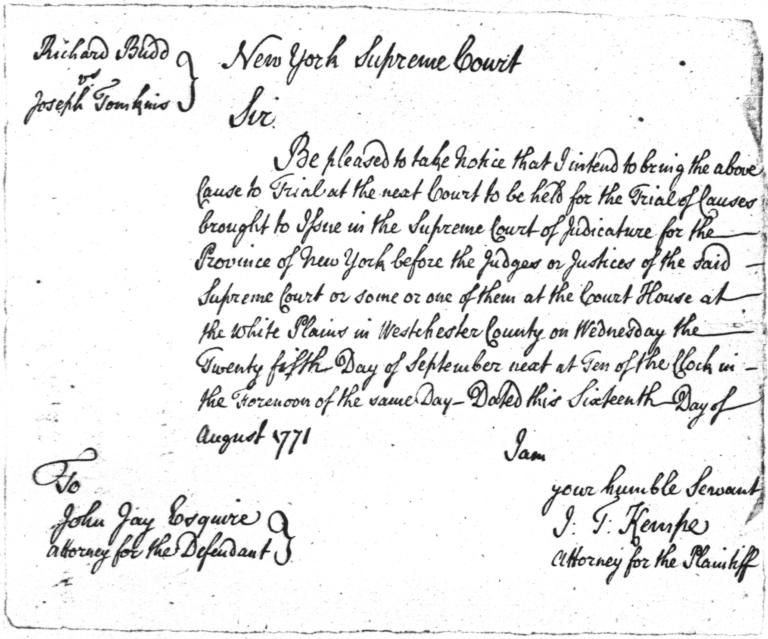 Richard Budd
vs
Joseph Tomkins
New York Supreme Court
Sir.
Be pleased to take Notice that I intend to bring the above
Cause to Trial at the next Court to be held for the Trial of Causes
brought to Issue in the Supreme Court of Judicature for the
Province of New York before the Judges or Justices of the said
Supreme Court or some or one of them at the Court House at
the White Plains in Westchester County on Wednesday the
Twenty fifth Day of September next at Ten of the Clock in
the Forenoon of the same Day – Dated this Sixteenth Day of
August 1771
I am
your humble Servant
J. T. Kempe
Attorney for the Plaintiff
To
John Jay Esquire
Attorney for the Defendant